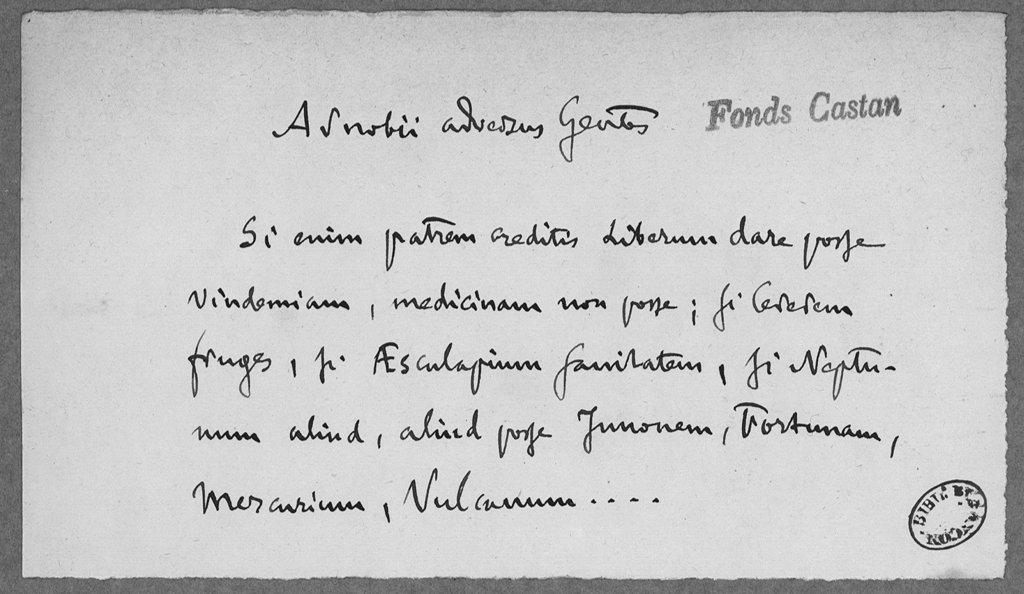 Arnobii adversus Gentes
Fonds Castan
Si enim patrem creditis Liberum dare posse
vindemiam, medicinam non posse; si Cererem
fruges, si Æsculapium sanitatem, si Neptu-
num aliud, aliud posse Junonem, Fortunam,
Mercurium, Vulcanum....
BIBL.